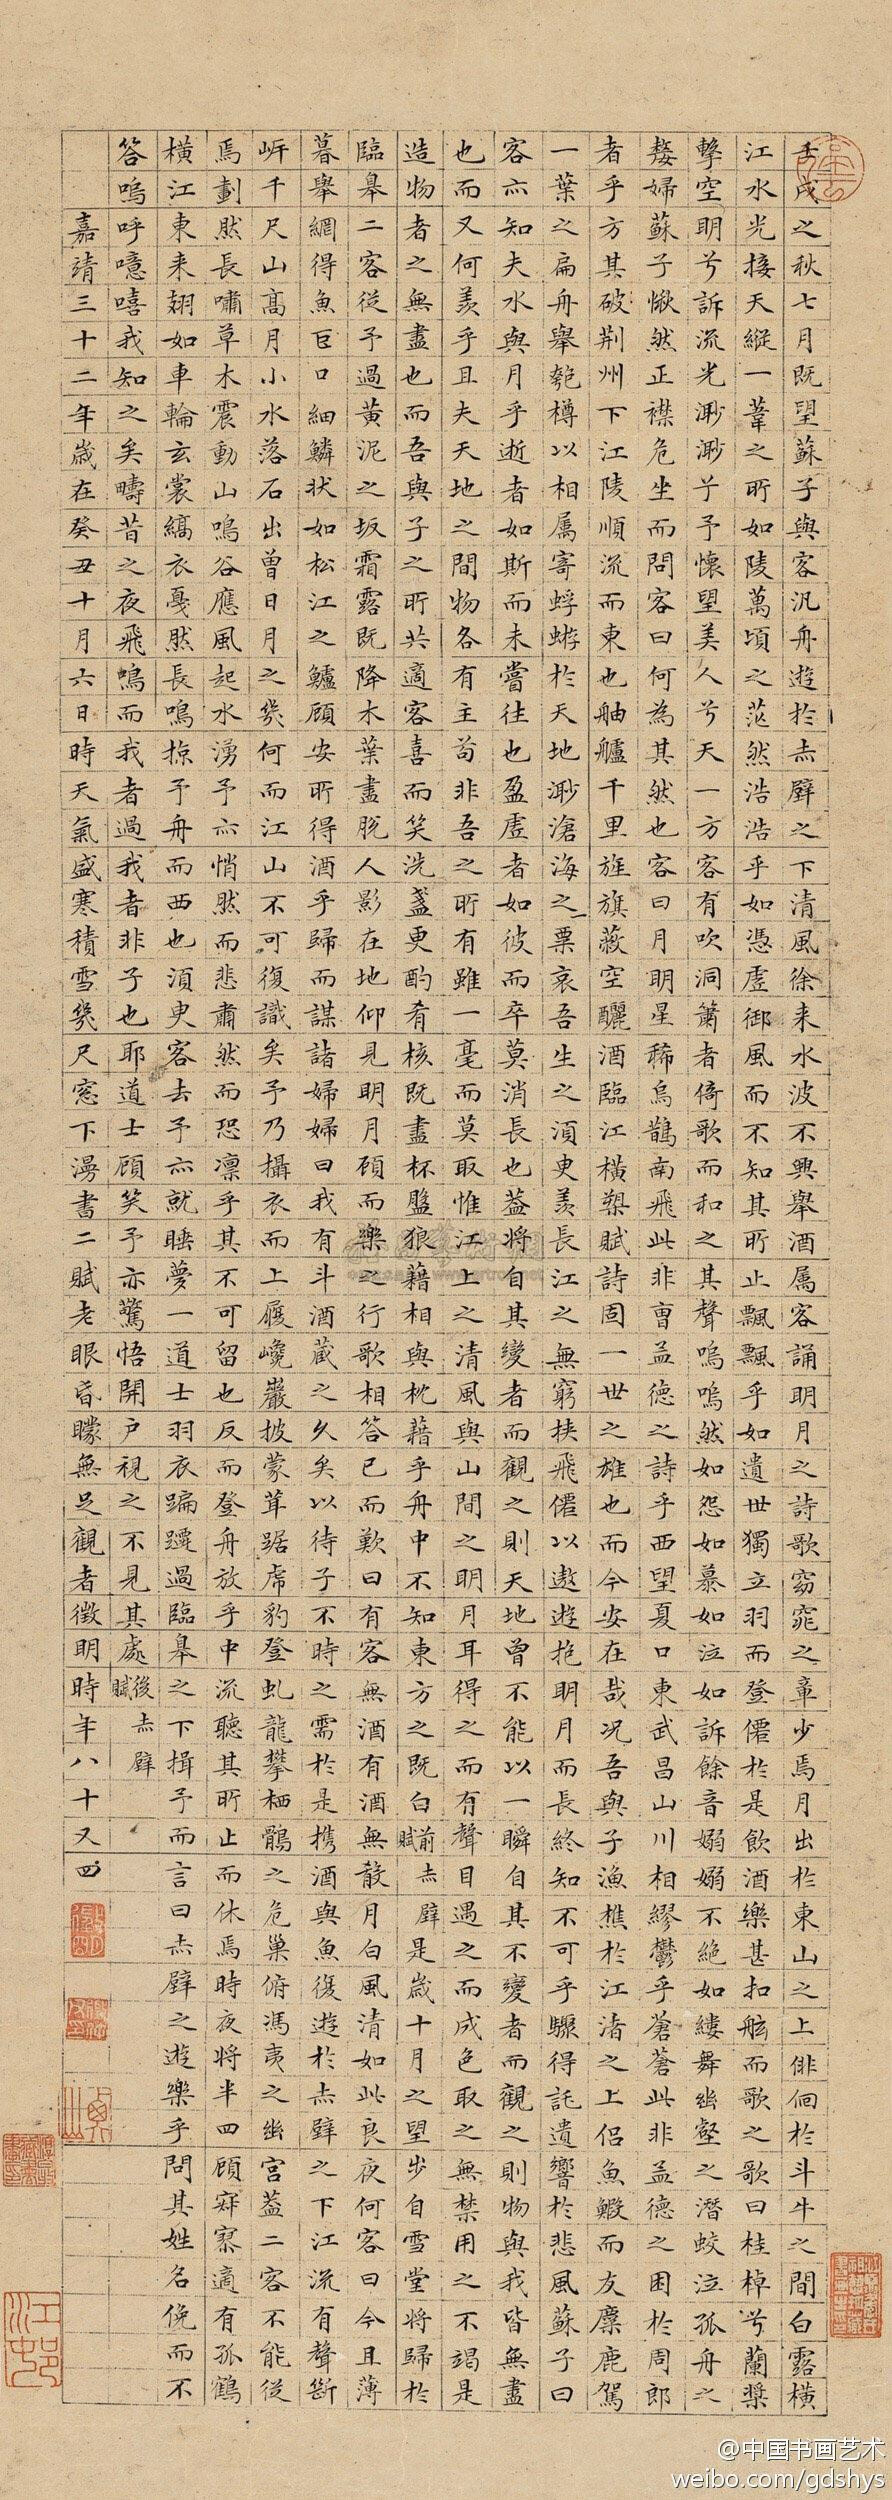 壬戌之秋七月既望蘇子與客汎舟遊於赤壁之下清風徐来水波不興舉酒属客誦明月之詩歌窈窕之章少焉月出於東山之上徘徊於斗牛之間白露横
江水光接天縱一葦之所如陵萬頃之茫然浩浩乎如憑虛御風而不知其所止飄飄乎如遺世獨立羽而登僊於是飲酒樂甚扣舷而歌之歌曰桂棹兮蘭槳
擊空明兮訴流光渺渺兮予懷望美人兮天一方客有吹洞簫者倚歌而和之其聲嗚嗚然如怨如慕如泣如訴餘音嫋嫋不絕如縷舞幽壑之潛蛟泣孤舟之
嫠婦蘇子愀然正襟危坐而問客曰何為其然也客曰月明星稀烏鵲南飛此非曹孟德之詩乎西望夏口東武昌山川相繆鬱乎蒼蒼此非孟德之困於周郎
者乎方其破荆州下江陵順流而東也舳艫千里旌旗蔽空釃酒臨江横槊賦詩固一世之雄也而今安在哉况吾與子漁樵於江渚之上侣魚鰕而友麋鹿駕
一葉之扁舟舉匏樽以相属寄蜉蝣於天地渺滄海之一粟哀吾生之須臾羡長江之無窮挟飛僊以遨遊抱明月而長終知不可乎驟得託遺響於悲風蘇子曰
客亦知夫水與月乎逝者如斯而未嘗往也盈虛者如彼而卒莫消長也蓋將自其變者而觀之則天地曾不能以一瞬自其不變者而觀之則物與我皆無盡
也而又何羡乎且夫天地之間物各有主苟非吾之所有雖一毫而莫取惟江上之清風與山間之明月耳得之而有聲目遇之而成色取之無禁用之不竭是
造物者之無盡也而吾與子之所共適客喜而笑洗盞更酌肴核既盡杯盤狼藉相與枕藉乎舟中不知東方之既白前赤壁賦是歲十月之望步自雪堂將歸於
臨皋二客從予過黄泥之坂霜露既降木葉盡脱人影在地仰見明月顧而樂之行歌相答已而歎曰有客無酒有酒無殽月白風清如此良夜何客曰今且薄
暮舉網得魚巨口細鱗狀如松江之鱸顧安所得酒乎歸而謀諸婦婦曰我有斗酒藏之久矣以待子不時之需於是携酒與魚復遊於赤壁之下江流有聲斷
岍千尺山高月小水落石出曾日月之幾何而江山不可復識矣予乃攝衣而上履巉巖披蒙茸踞虎豹登虬龍攀栖鶻之危巢俯馮夷之幽宮蓋二客不能從
焉劃然長嘯草木震動山鳴谷應風起水湧予亦悄然而悲肅然而恐凛乎其不可留也反而登舟放乎中流聽其所止而休焉時夜將半四顧寂寥適有孤鶴
横江東来翅如車輪玄裳縞衣戛然長鳴掠予舟而西也須臾客去予亦就睡夢一道士羽衣蹁躚過臨皋之下揖予而言曰赤壁之遊樂乎問其姓名俛而不
答嗚呼噫嘻我知之矣疇昔之夜飛鳴而我者過我者非子也耶道士顧笑予亦驚悟開户視之不見其處後赤壁賦
嘉靖三十二年歲在癸丑十月六日時天氣盛寒積雪幾尺窓下漫書二賦老眼昏矇無足觀者徵明時年八十又四
江邨
@中国书画艺术
weibo.com/gdshys